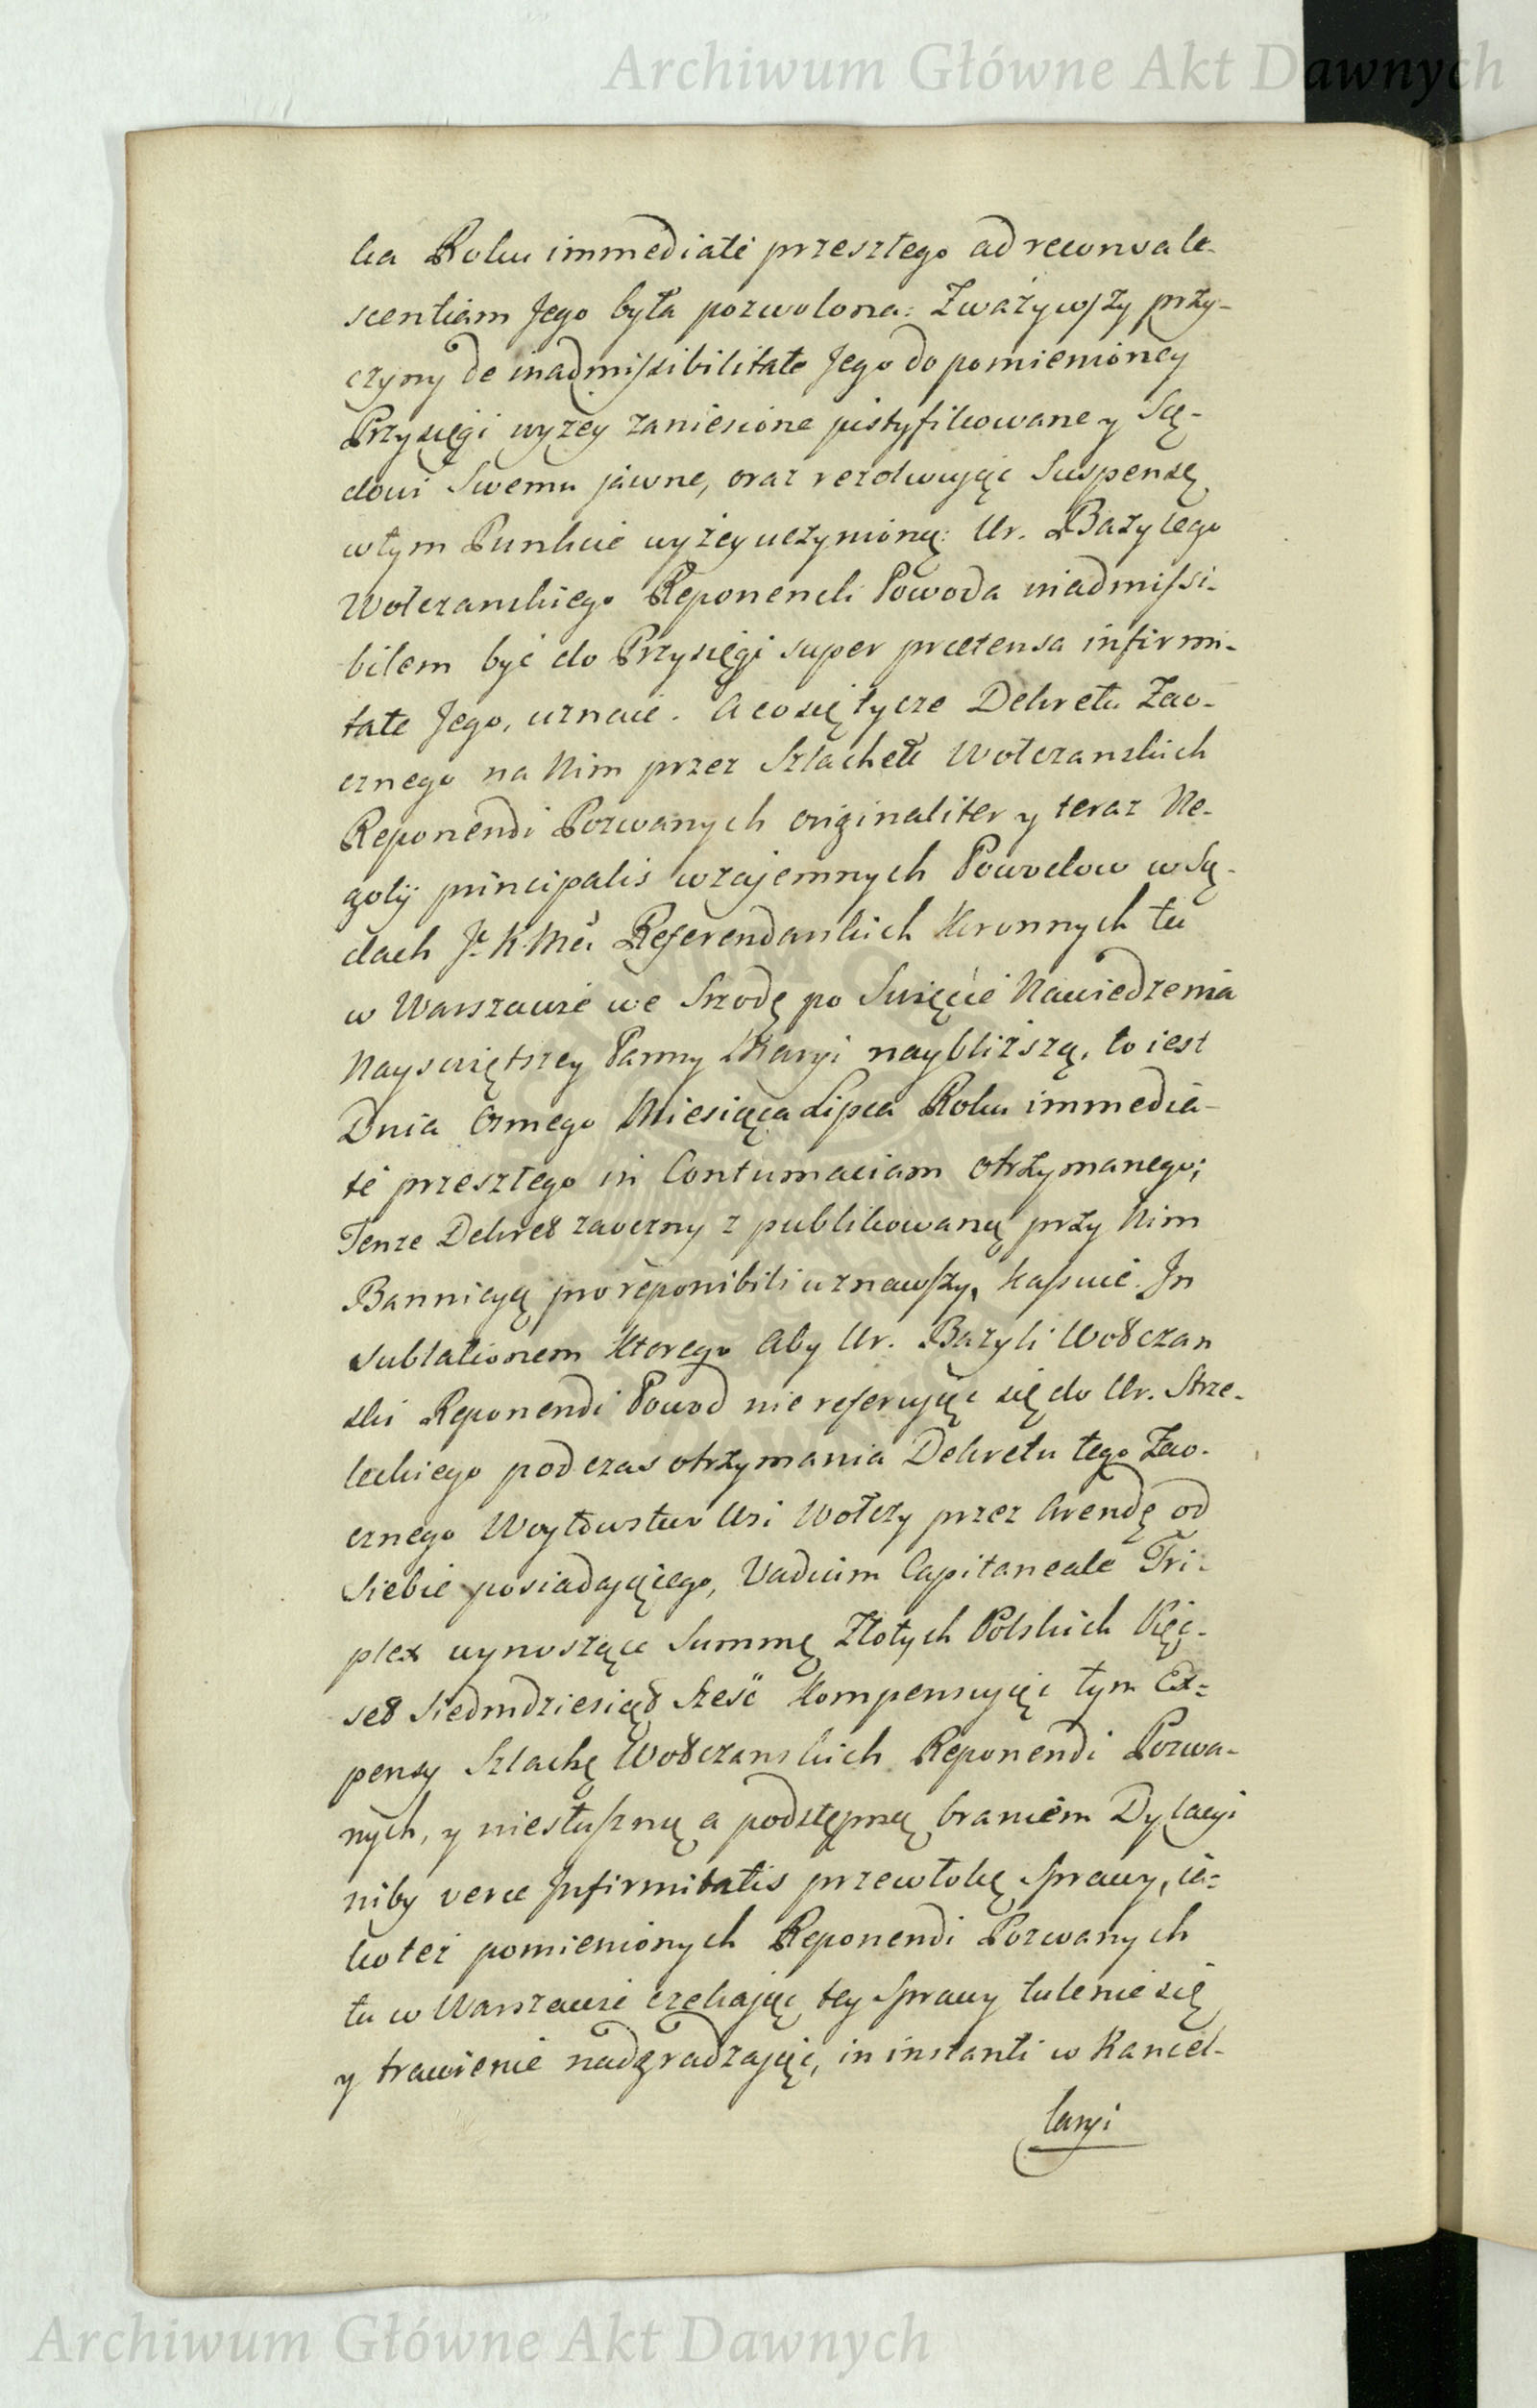 Archiwum Główne Akt Dawnych
ka Roku immediatè przeszłego ad reconvale-
scentiam Jego była pozwolona: Zważywszy przy-
czyny de inadmissibilitate Jego do pomienioney
Przysięgi wyżey zaniesione justyfikowane y Są-
dowi Swemu jawne, oraz rezolwując Suspensę
w tym Punkcie wyżey uczynioną: Ur. Bazylego
Wołczanskiego Reponendi Powoda inadmissi-
bilem być do Przysięgi super prætensa infirmi-
tate Jego, uznaie. A co się tycze Dekretu Zao-
cznego na Nim przez Szlachetę Wołczanskich
Reponendi Pozwanych originaliter y teraz Ne-
gotij principalis wzajemnych Powodow w Są-
dach Je. K. Mci Referendarskich Koronnych tu
w Warszawie we Srzodę po Swięcie Nawiedzenia
Nayswiętszey Panny Maryi naybliższą, to iest
Dnia Osmego Miesiąca Lipca Roku immedia-
te przeszłego in Contumaciam otrzymanego;
Tenze Dekret zaoczny z publikowaną przy Nim
Bannicyą pro reponibili uznawszy, kassuie. In
sublationem Ktorego Aby Ur. Bazyli Wołczan
ski Reponendi Powod nie referując się do Ur. Strze-
leckiego podczas otrzymania Dekretu tego Zao-
cznego Woytowstwo Wsi Wołczy przez Arendę od
Siebie posiadającego, Vadium Capitaneale Tri-
plex wynoszące Summę Złotych Polskich Pięć-
set Siedmdziesiąt Sześć Kompensując tym Ex-
pensy Szlachę Wołczanskich Reponendi Pozwa-
nych, y niesłuszną a podstępną braniem Dylacyi
niby veræ Infirmitatis przewłokę Sprawy, ia-
koteż pomienionych Reponendi Pozwanych
tu w Warszawie czekając tey Sprawy tulenie się
y trawienie nadgradzając, in instanti w Kancel-
laryi
Archiwum Główne Akt Dawnych